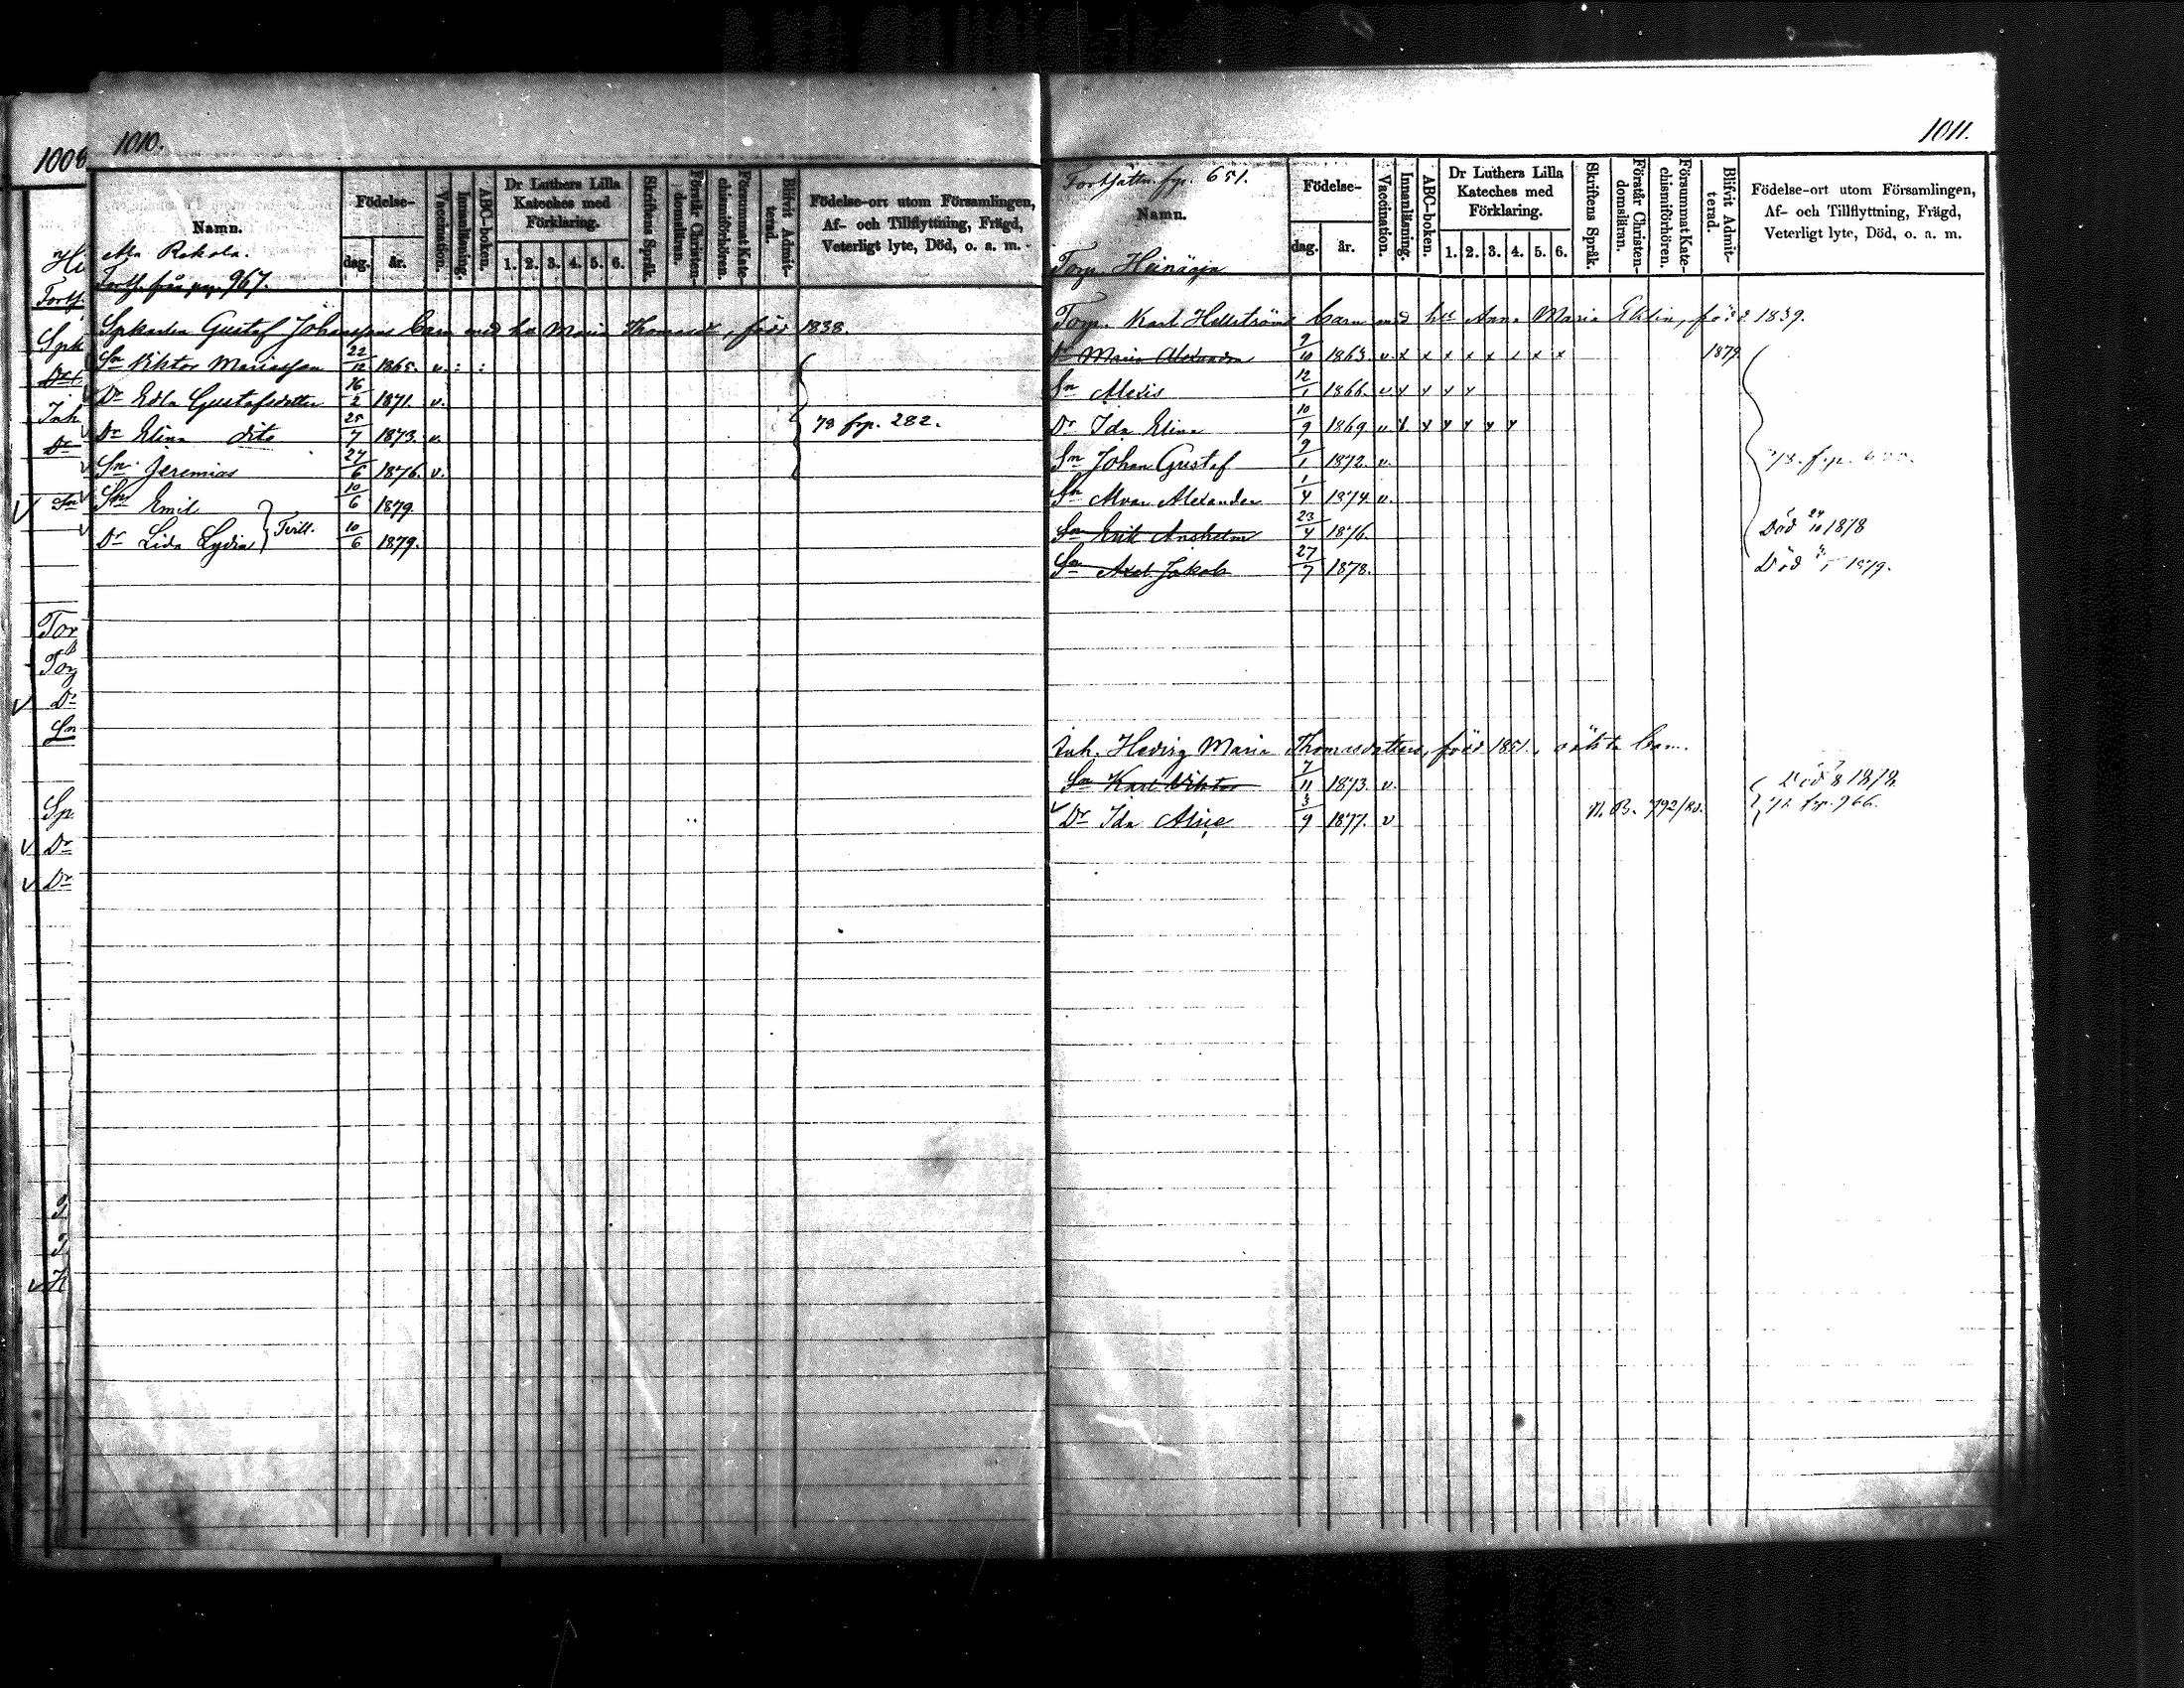 1008
1010.
Namn.
Födelse-
dag.
år.
Vaccination.
Innanläsning.
ABC-boken.
Dr Luthers Lilla
Kateches med
Förklaring.
1. 2. 3. 4. 5. 6.
Skriftens Språk.
Förstår Christen-
domsläran.
Försummat Kate-
chismiförhören.
Blifvit Admit-
terad.
Födelse-ort utom Församlingen,
Af- och Tillflyttning, Frägd,
Veterligt lyte, Död, o. a. m.
Rekola.
Forts. från pag. 967.
Gustaf Johanssons barn med hu Maria Thomasdr, född 1838.
Sn Viktor Mariasson 22/12 1865. v. : :
Dr Edla Gustafsdotter 16/2 1871. v.
Dr Elina dito 25/7 1873. v. 78 frp. 282.
Sn Jeremias 24/6 1876. v.
Sn Emil 10/6 1879
Dr Lida Lydia Tvill. 10/6 1879.
1011.
Fortsättn. fr p. 651.
Namn.
Födelse-
dag.
år.
Vaccination.
Innanläsning.
ABC-boken.
Dr Luthers Lilla
Kateches med
Förklaring.
1. 2. 3. 4. 5. 6.
Skriftens Språk.
Förstår Christen-
domsläran.
Försummat Kate-
chismiförhören.
Blifvit Admit-
terad.
Födelse-ort utom Församlingen,
Af- och Tillflyttning, Frägd,
Veterligt lyte, Död, o. a. m.
Torp. Heinäoja
Torp. Karl Hellströms barn med hu Anna Maria född 1839.
Dr Maria Alexandra 9/10 1863. v. x x x x x x x x 1879
Sn Alexis 12/1 1866. v x x x x
Dr Ida Elina 10/9 1869 v x x x x x
Sn Johan Gustaf 9/1 1872. v. 78. frp.
Sn Alvar Alexander 1/4 1874. v.
Sn Erik Anshelm 23/4 1876. Död 24/10 1878
Sn Axel Jakob 27/7 1878. Död 1879.
Inh. Hedvig Maria Thomasdotters, född 1851., oäkta barn.
Sn Karl Viktor 7/11 1873. v. Död 1878.
Dr Ida Alice 3/9 1877. v N. B. 792/80. 72 frp. 966.